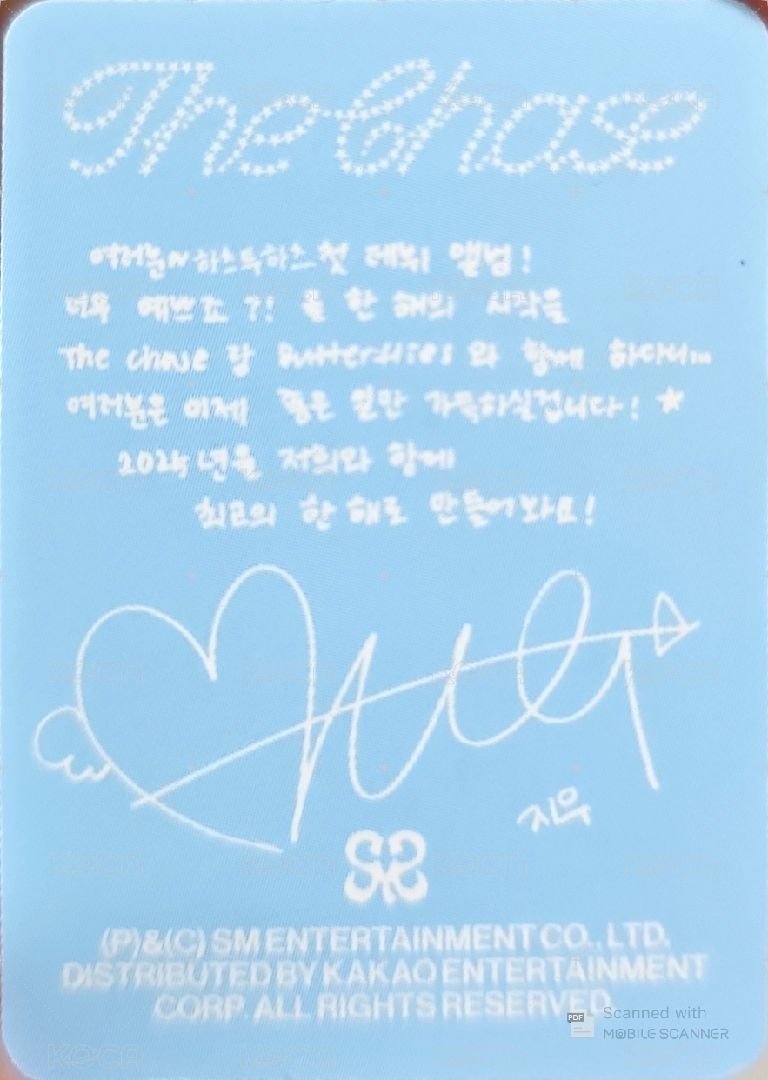 The Chase
여러분~ 하츠투하츠 첫 데뷔 앨범!
너무 예쁘죠?! 올 한 해의 시작을
The chase 랑 Butterflies 와 함께 하다니...
여러분은 이제 좋은 일만 가득하실겁니다! ★
2025년을 저희와 함께
최고의 한 해로 만들어봐요!
지우
(P)&(C) SM ENTERTAINMENT CO., LTD.
DISTRIBUTED BY KAKAO ENTERTAINMENT
CORP. ALL RIGHTS RESERVED
PDF Scanned with
MOBILE SCANNER
KOCA